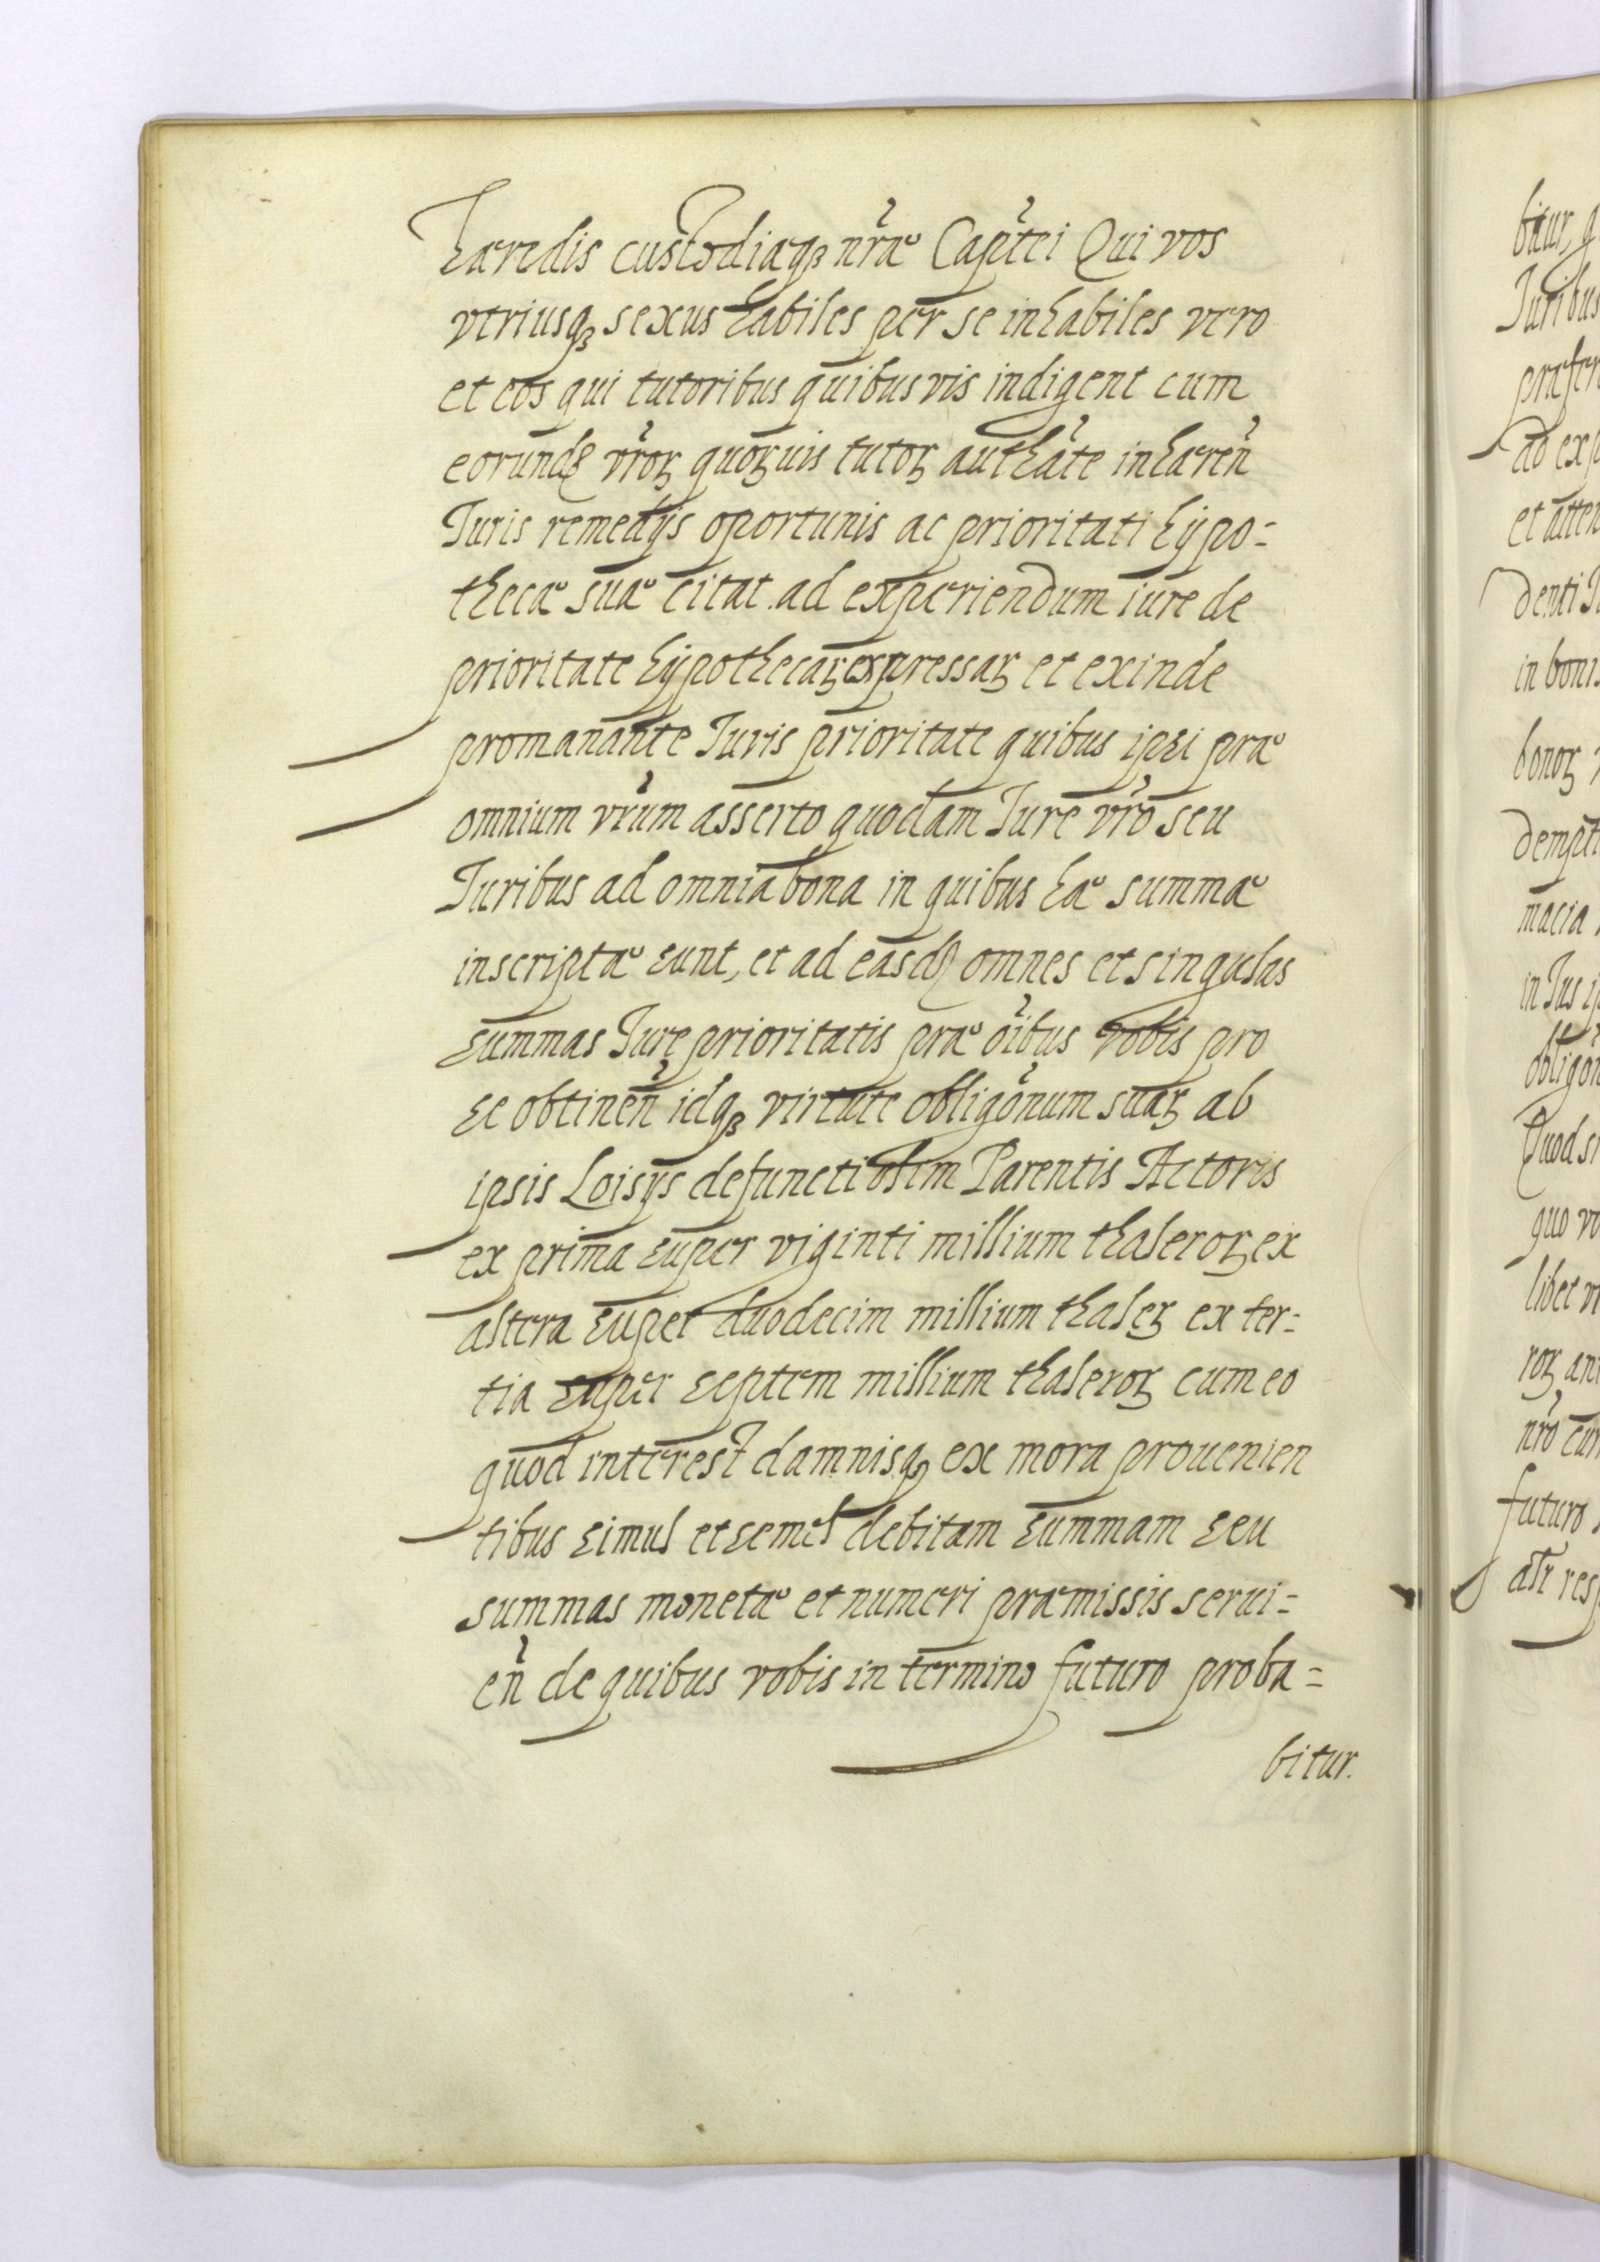 Hæredis custodiaqꝫ nr̃æ Cap̃tei Qui vos
vtriusqꝫ sexus habiles per se inhabiles vero
et eos qui tutoribus quibusvis indigent cum
eorundꝫ vr̃oꝝ quoꝝuis tutoꝝ auth̃ate inhæreñ
Iuris remedijs oportunis ac prioritati hÿpo=
thecæ suæ citat ad experiendum iure de
prioritate hÿpothecaꝝ expressaꝝ et exinde
promanante Iuris prioritate quibus ipsi præ
omnium vr̃um asserto quodam Iure vr̃o seu
Iuribus ad omnia bona in quibus hæ summæ
inscriptæ sunt, et ad easdꝫ omnes et singulas
summas Iure prioritatis præ õibus vobis pro
se obtineñ idqꝫ virtute obligõnum suaꝝ ab
ipsis Loisijs defuncti olim Parentis Actoris
ex prima super viginti millium thaleroꝝ ex
altera super duodecim millium thaleꝝ ex ter=
tia super septem millium thaleroꝝ cum eo
quod interest damnisqꝫ ex mora prouenien
tibus simul et semel debitam summam seu
summas monetæ et numeri præmissis serui=
eñ de quibus vobis in termino futuro proba=
bitur.
bitur, q
Iuribus
præfer
ad exp
et atten
denti I
in bonis
bonoꝝ
dempti
macia
in Ius i
obligõn
Quod si
quo vo
libet v
roꝝ an
nr̃o cum
futuro
alr̃ res